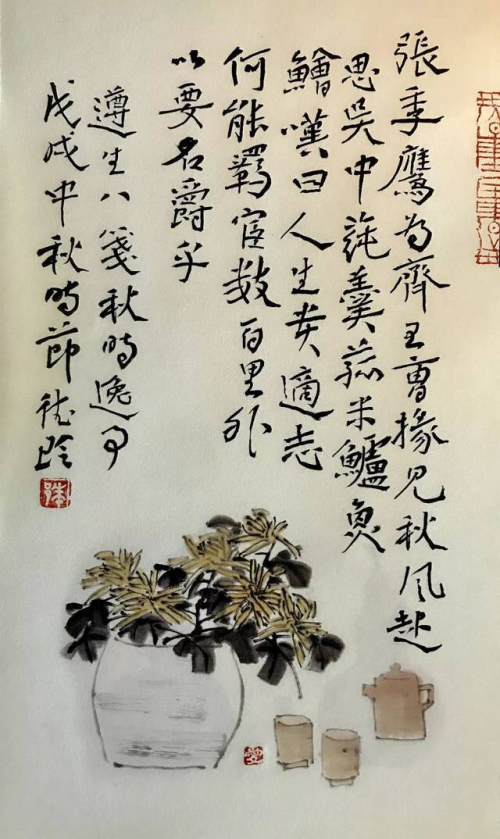 張季鷹為齊王曹掾見秋風起
思吳中蒓羹菰米鱸魚
鱠嘆曰人生貴適志
何能羈宦数百里外
以要名爵乎
遵生八箋秋時逸事
戊戌中秋時節